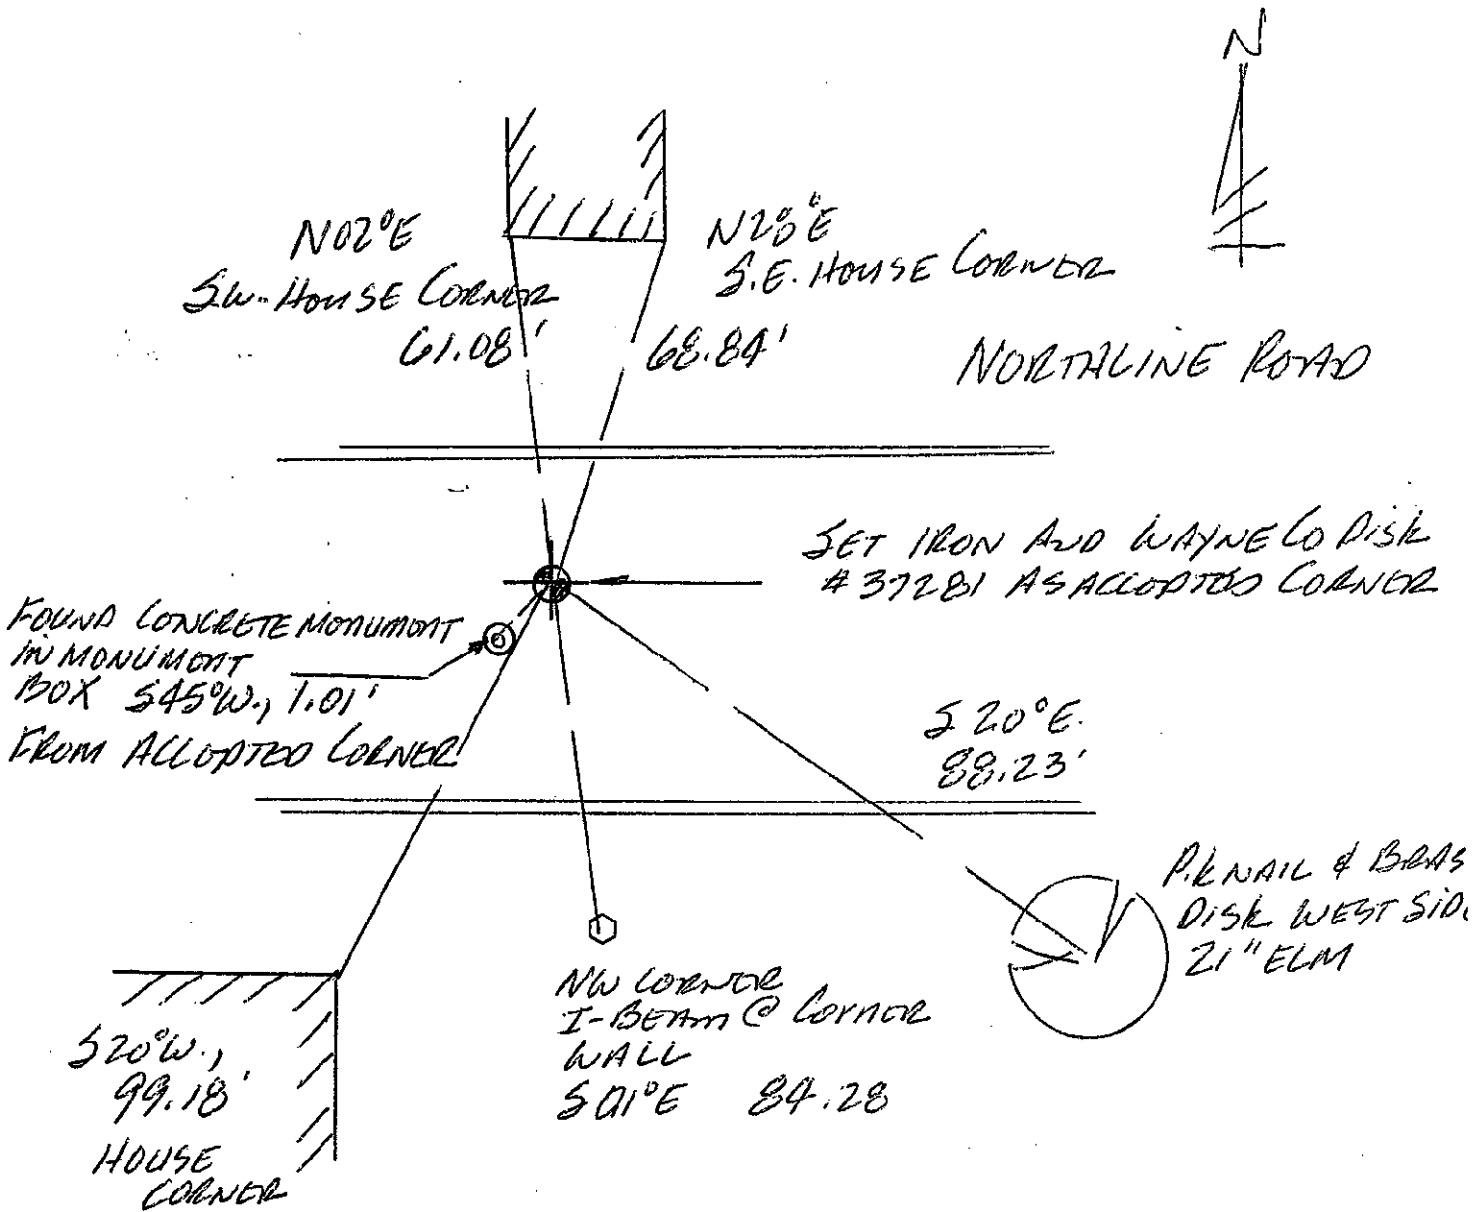 N
N02°E
S.W. HOUSE CORNER
61.08'
N28°E
S.E. HOUSE CORNER
68.84'
NORTHLINE ROAD
SET IRON AND WAYNE CO DISK
#37281 AS ACCEPTED CORNER
FOUND CONCRETE MONUMENT
IN MONUMENT
BOX S45°W., 1.01'
FROM ACCEPTED CORNER
S20°E.
88.23'
P.K NAIL & BRAS
DISK WEST SIDE
21" ELM
NW CORNER
I-BEAM @ CORNER
WALL
S01°E 84.28
S20°W.,
99.18'
HOUSE
CORNER